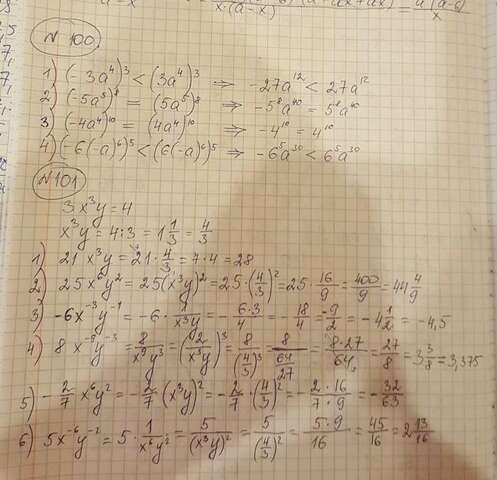 x·(a-x)
x
№ 100
1) (-3a⁴)³ < (3a⁴)³ ⇒ -27a¹² < 27a¹²
2) (-5a⁵)⁸ = (5a⁵)⁸ ⇒ -5⁸a⁴⁰ = 5⁸a⁴⁰
3) (-4a⁴)¹⁰ = (4a⁴)¹⁰ ⇒ -4¹⁰ = 4¹⁰
4) (-6(-a)⁶)⁵ < (6(-a)⁶)⁵ ⇒ -6⁵a³⁰ < 6⁵a³⁰
№101
3x³y = 4
x³y = 4:3 = 1 1/3 = 4/3
1) 21x³y = 21·4/3 = 7·4 = 28
2) 25x⁶y² = 25(x³y)² = 25·(4/3)² = 25·16/9 = 400/9 = 44 4/9
3) -6x⁻³y⁻¹ = -6·1/x³y = -6·3/4 = -18/4 = -9/2 = -4 1/2 = -4,5
4) 8x⁻⁹y⁻³ = 8/x⁹y³ = (2/x³y)³ = 8/(4/3)³ = 8/(64/27) = 8·27/64 = 27/8 = 3 3/8 = 3,375
5) -2/7x⁶y² = -2/7·(x³y)² = -2/7·(4/3)² = -2·16/7·9 = -32/63
6) 5x⁻⁶y⁻² = 5·1/x⁶y² = 5/(x³y)² = 5/(4/3)² = 5·9/16 = 45/16 = 2 13/16